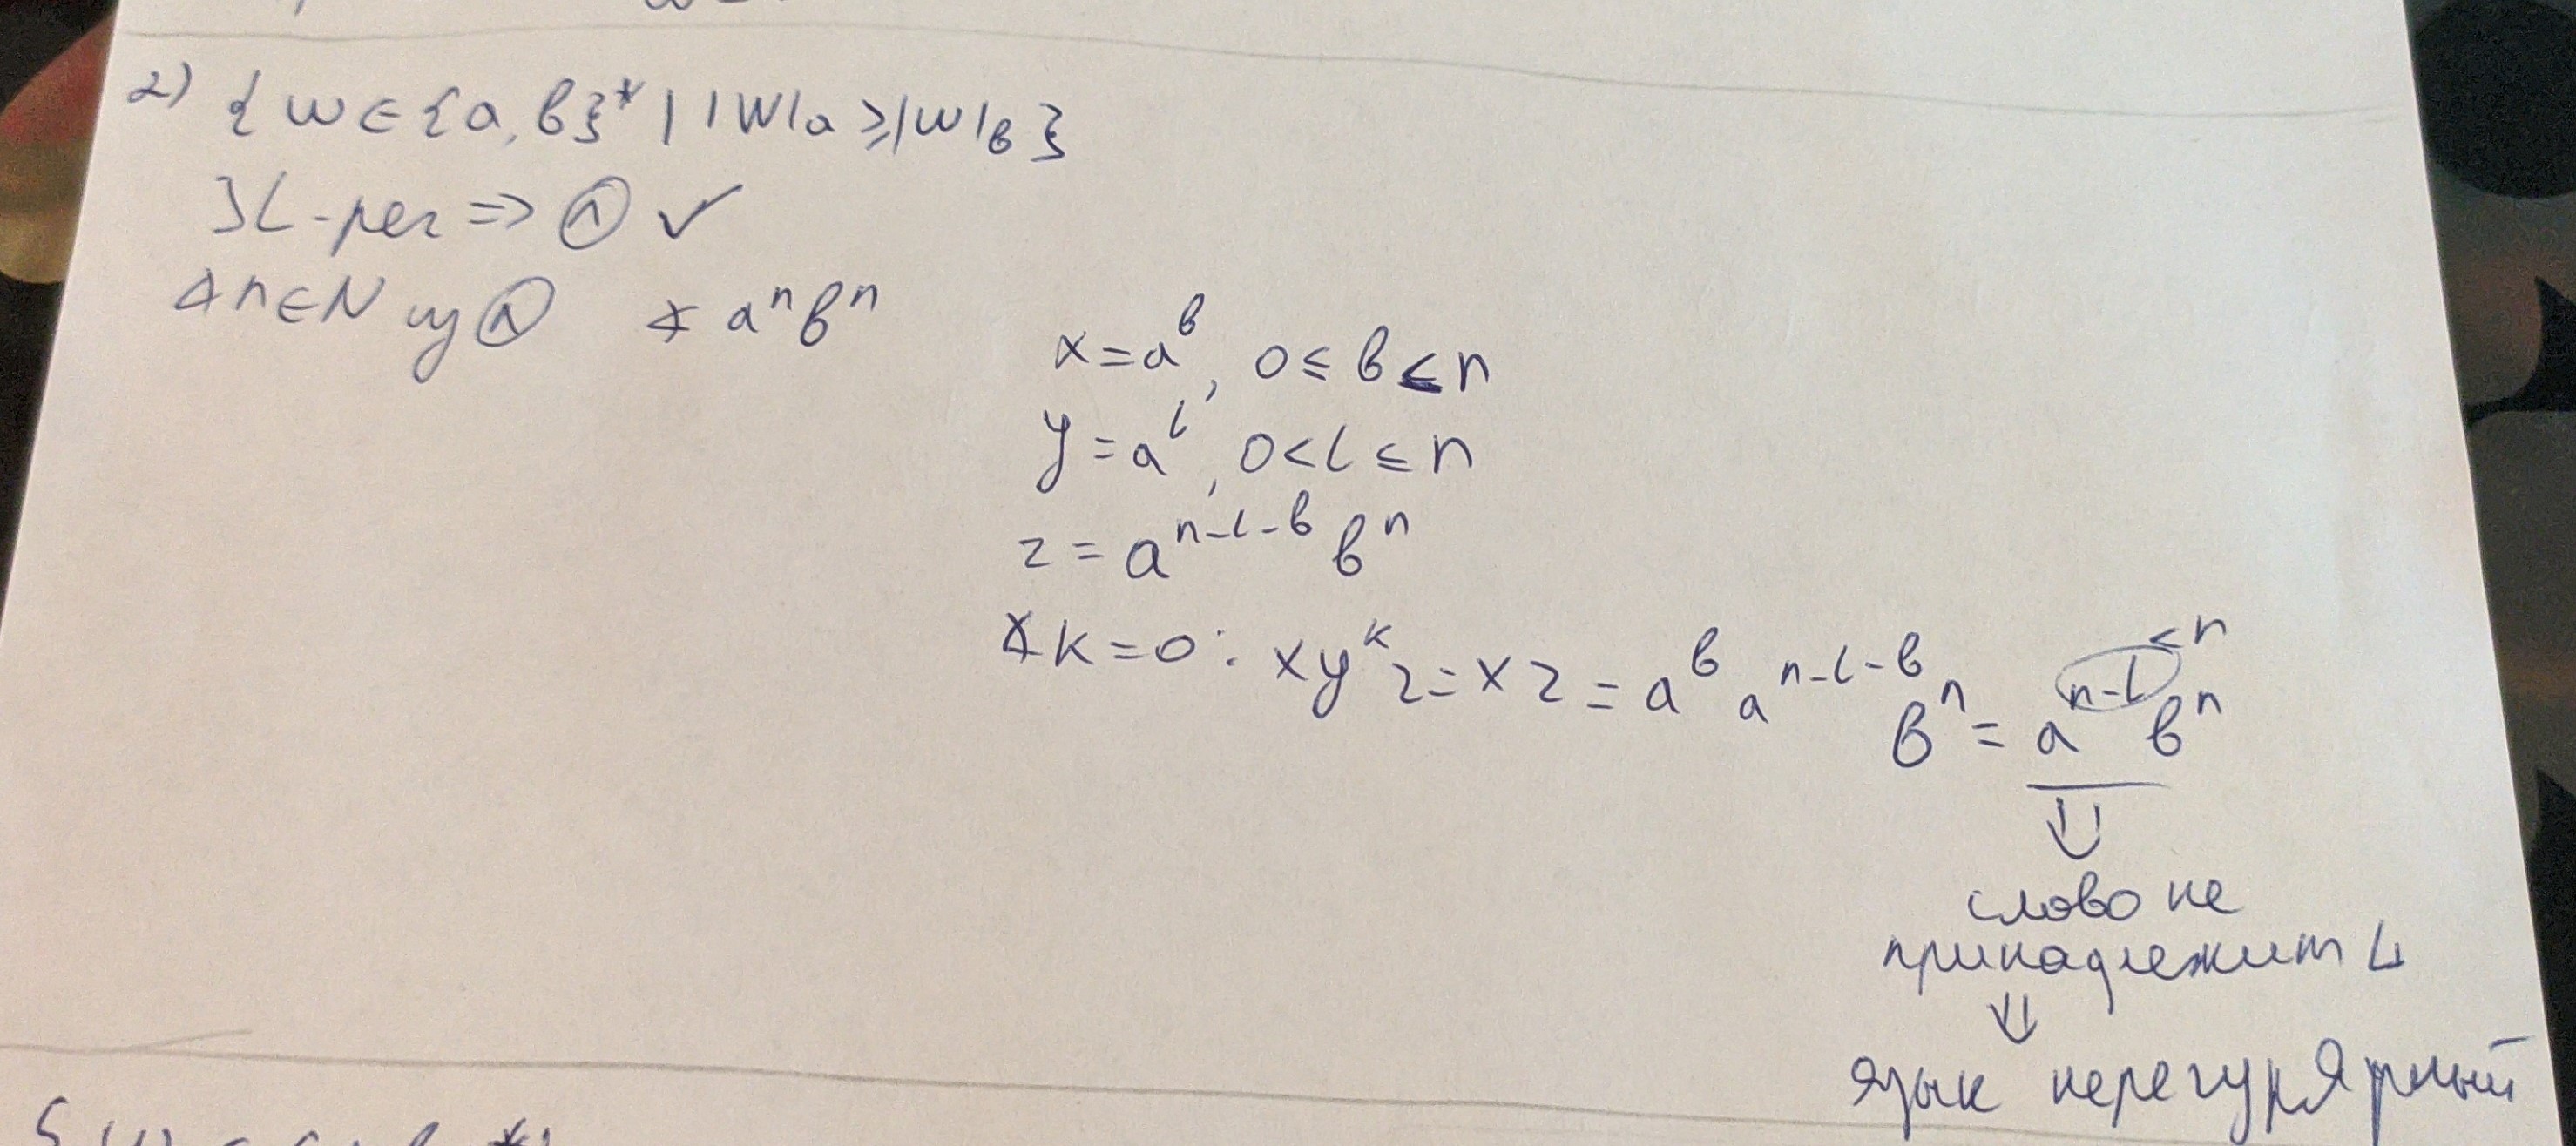 2) { w ∈ {a, b}* | |w|a ≥ |w|b }
]L - рег ⇒ Ⓛ ✓
∢ n ∈ N из Ⓛ ∢ aⁿbⁿ
x = a^b, 0 ≤ b ≤ n
y = a^l, 0 < l ≤ n
z = a^{n-l-b} bⁿ
∢ k = 0 : xy^k z = xz = a^b a^{n-l-b} bⁿ = a^{n-l} bⁿ
< n
⇓
слово не
принадлежит L
⇓
язык нерегулярный